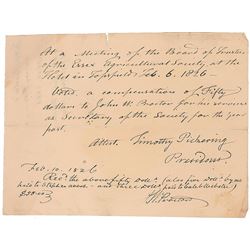 At a Meeting of the Board of Trustees
of the Essex Agricultural Society at the
Hotel in Topsfield Feb. 6. 1826 -
Voted, a compensation of Fifty
dollars to John W. Proctor for his services
as Secretary of the Society for the year
past.
Attest, Timothy Pickering
President.
Feb. 10. 1826
Recd. the above fifty Dolls.